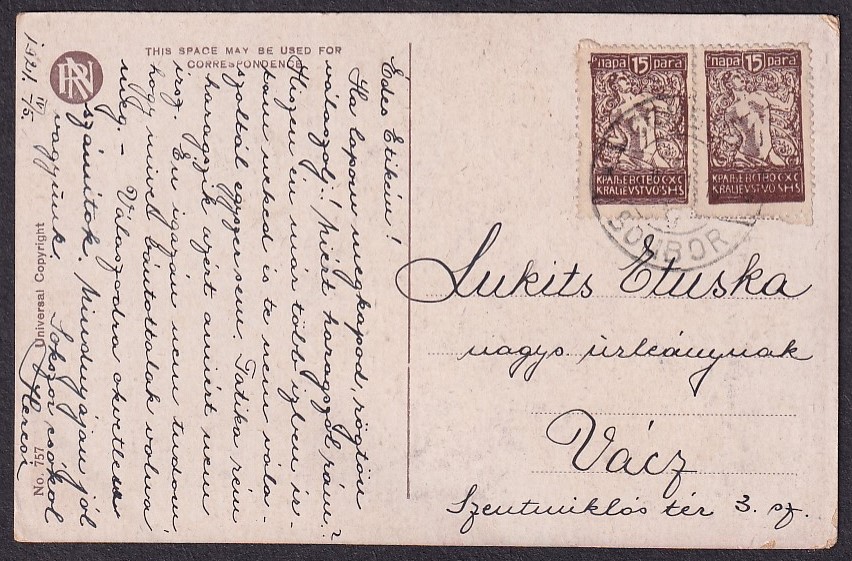 THIS SPACE MAY BE USED FOR
CORRESPONDENCE
1921. IV/5.
Édes Etikém!
Ha lapom megkapod, rögtön
válaszolj! Miért haragszol rám?
Hiszen én már több ízben ír-
tam neked is te nem vála-
szoltál egyszersem. Tatika rém
haragszik azért amiért nem
irsz. Én igazán nem tudom
hogy mivel bántottalak volna
meg. - Válaszodra okvetlen
számitok. Mindnyájan jól
vagyunk. Sokszor csókol
Hercsi
No. 757
Universal Copyright
RN
пара 15 para
КРАЉЕВСТВО СХС
KRALJEVSTVO SHS
пара 15 para
КРАЉЕВСТВО СХС
KRALJEVSTVO SHS
SOMBOR
Lukits Etuska
nagys úrleánynak
Vácz
Szentmiklós tér 3. sz.